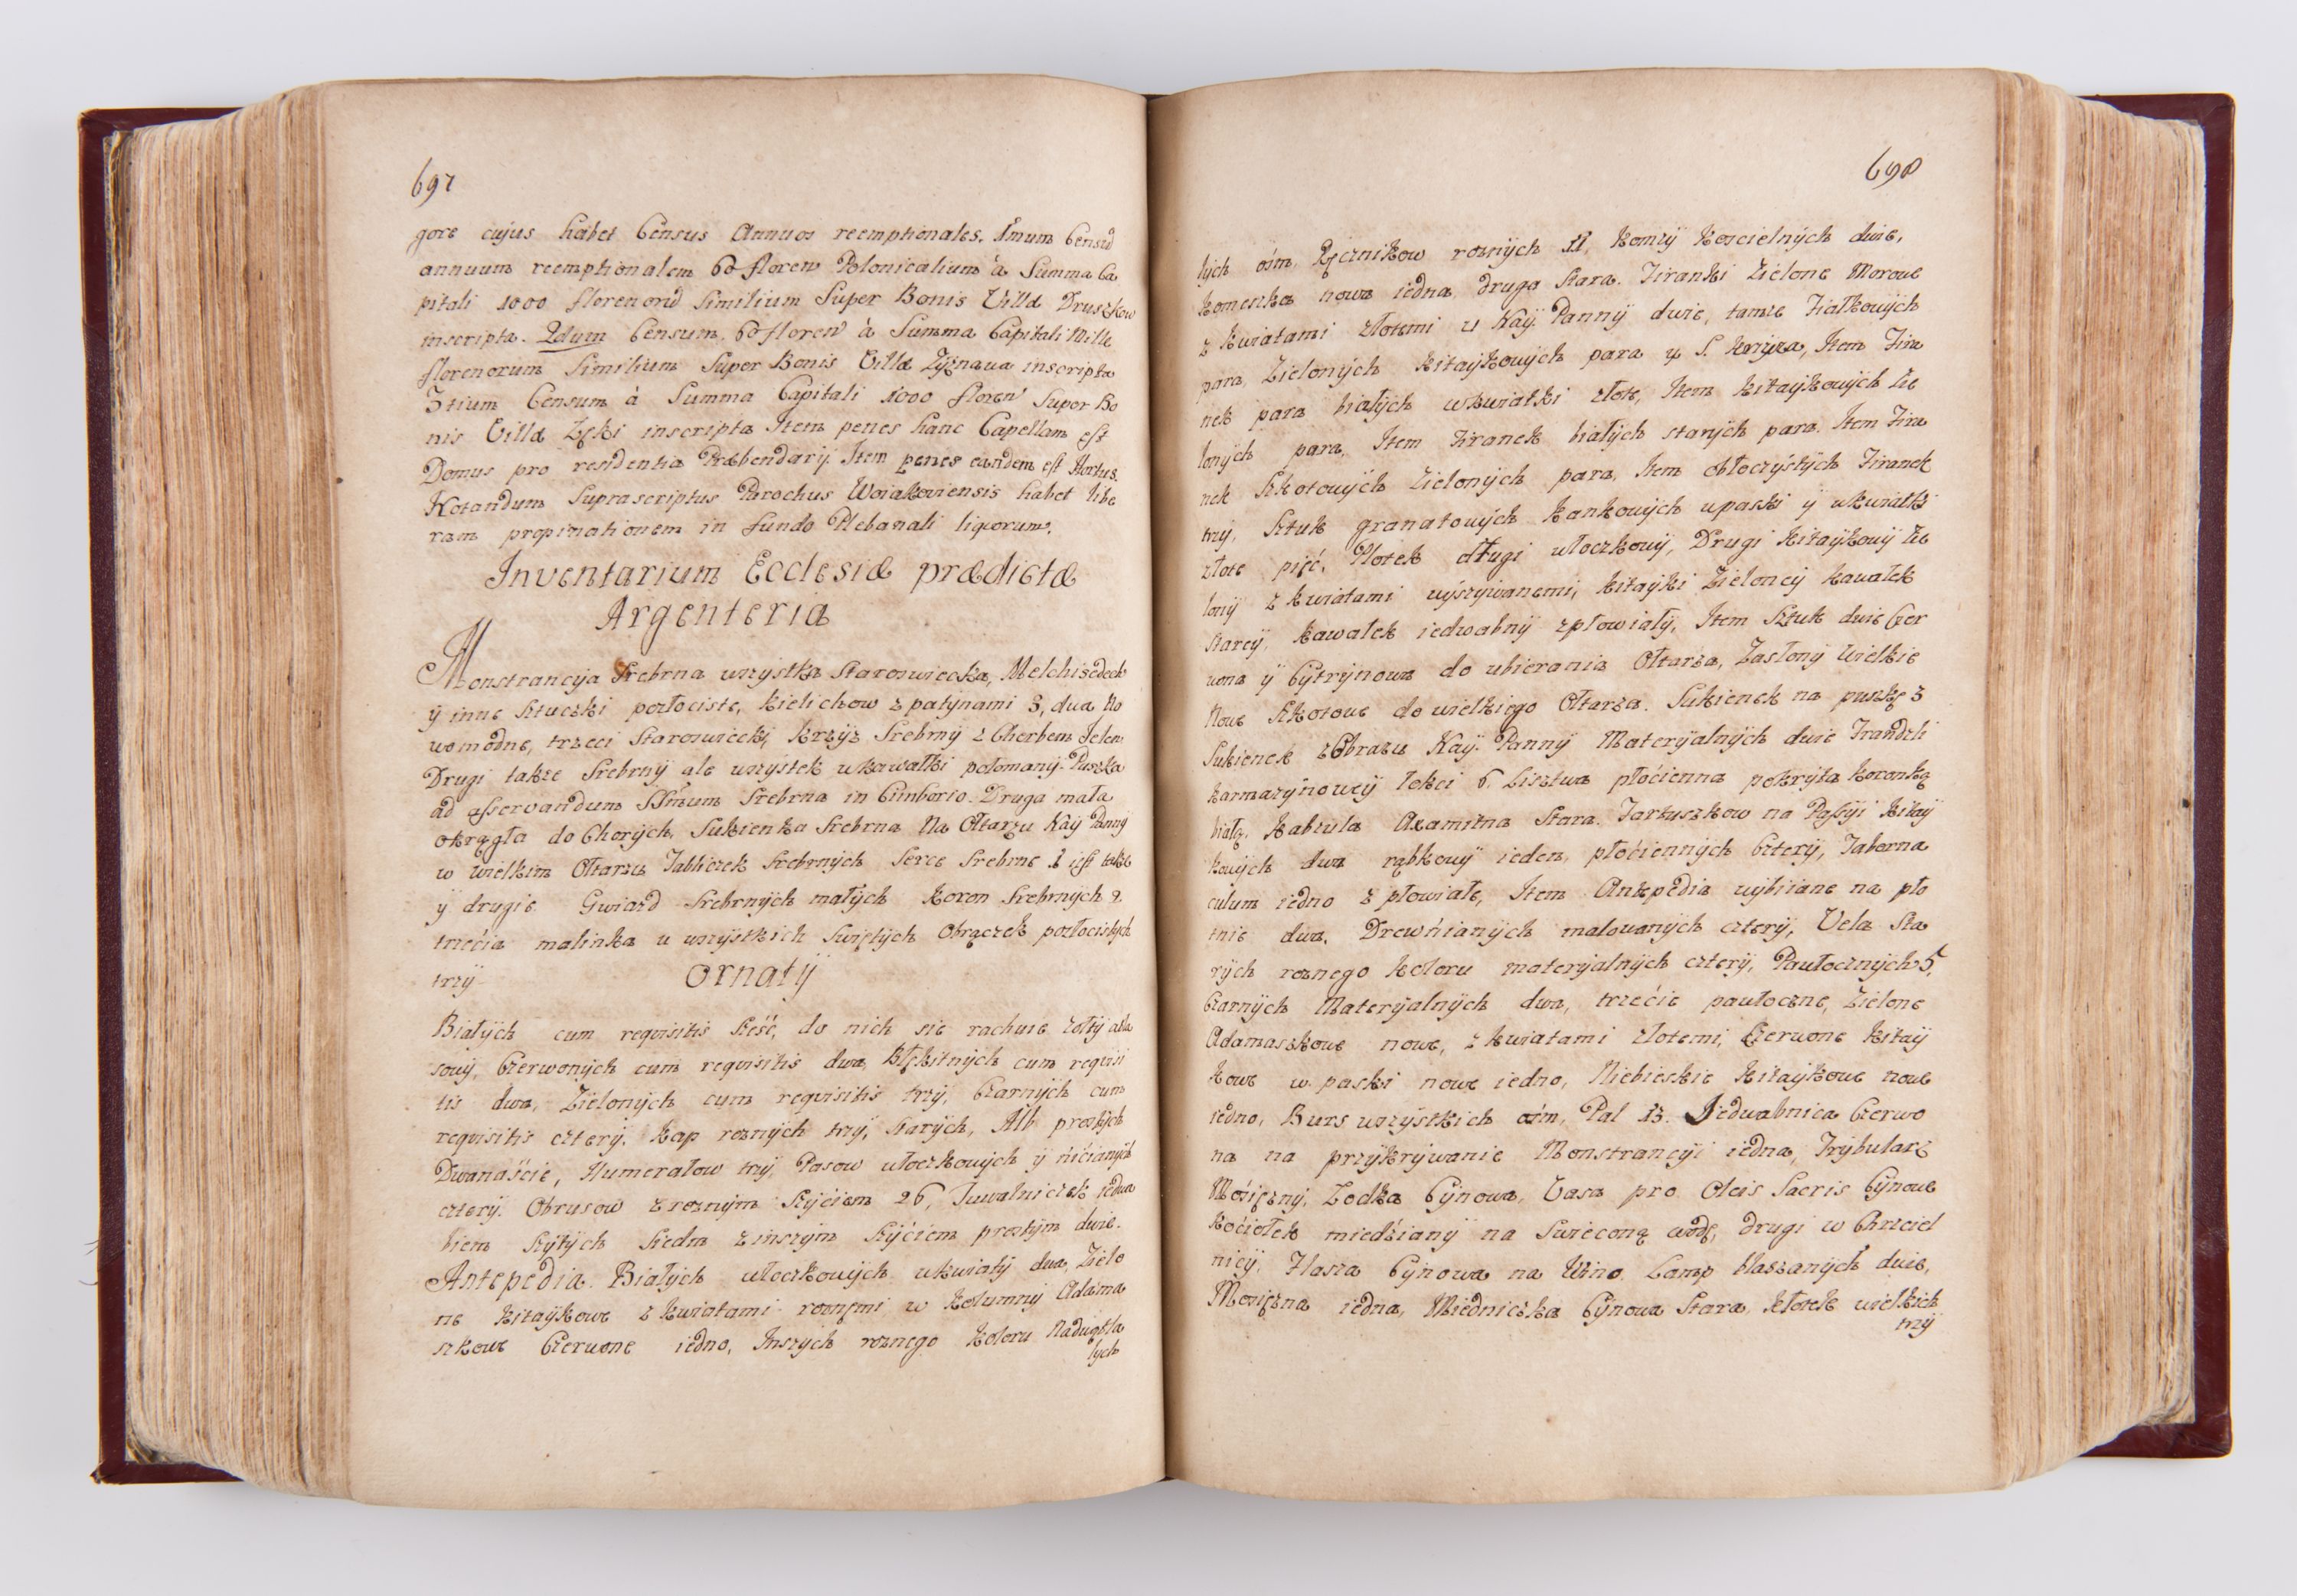 697
gore cujus habet Census Annuos reemptionales. Imum Censū
annuum reemptionalem 60 floren Polonicalium à Summa Ca
pitali 1000 florenorū Similium Super Bonis Villæ Druszkow
inscripta. 2dum Censum 60 floren à Summa Capitali Mille
florenorum Similium Super Bonis Villæ Zyznawa inscripta
3tium Censum à Summa Capitali 1000 floren Super Bo
nis Villæ Łęki inscripta Item penes hanc Capellam est
Domus pro residentia Præbendarij. Item penes eandem est Hortus.
Notandum Suprascriptus Parochus Woiakoviensis habet libe
ram propinationem in fundo Plebanali liquorum.
Inventarium Ecclesiæ prædictæ
Argenteria
Monstrancyja Srebrna wszystka Staroswiecka, Melchisedech
ÿ inne Sztuczki pozłociste, kielichow z patÿnami 3, dwa No
womodne, trzeci Staroswiecki, krzÿz Srebrnÿ z Cherbem Jelen
Drugi takze Srebrnÿ ale wszystek wkawałki połomanÿ. Puszka
ad asservandum SSmum Srebrna in Cimborio. Druga mała
okrągła do Chorÿch, Sukienka Srebrna Na Ołtarzu Naÿ Pannÿ
w wielkim Ołtarzu Tabliczek Srebrnÿch Serce Srebrne 1 iest takze
ÿ drugie Gwiazd Srebrnÿch małÿch koron Srebrnÿch 2.
trzećia malinka u wszÿstkich Swiętÿch Obrączek pozłocistÿch
trzÿ
Ornatÿ
Białÿch cum requisitis Sześć, do nich sie rachuie żołtÿ atła
sowÿ, Czerwonÿch cum requisitis dwa, Błękitnÿch cum requisi
tis dwa, Zielonÿch cum requisitis trzÿ, Czarnÿch cum
requisitis czterÿ. kap roznÿch trzÿ, starÿch, Alb prostÿch
Dwanaście, Humerałow trzÿ, Pasow włoczkowÿch ÿ nićianÿch
czterÿ. Obrusow z roznÿm Szÿćiem 26, Tuwalniczek iedwa
biem Szÿtÿch Siedm z inszÿm Szÿćiem prostÿm dwie.
Antepedia. Białÿch włoczkowÿch wkwiatÿ dwa, Zielo
ne kitaÿkowe z kwiatami roznÿmi w kolumnÿ Adama
szkowe Czerwone iedno, Inszÿch roznego koloru
łÿch
698
łÿch ośm, Ręcznikow roznÿch 11, komzÿ koscielnÿch dwie,
komeszka nowa iedna, druga Stara. Firanki Zielone Morowe
z kwiatami złotemi u Naÿ. Pannÿ dwie, tamze Fiałkowÿch
para, Zielonÿch kitaÿkowÿch para u S. krzyza, Item Fira
nek para białÿch wkwiatki złote, Item kitaÿkowÿch Zie
lonÿch para, Item Firanek białÿch starÿch para. Item Fira
nek Szkotowÿch Zielonÿch para, Item obłoczÿstÿch Firanek
trzÿ, Sztuk granatowÿch kankowÿch wpaski ÿ wkwiatki
złote pięć, Płotek długi włoczkowÿ, Drugi kitaÿkowÿ Zie
lonÿ z kwiatami wÿszÿwanemi, kitaÿki Zielonēÿ kawałek
Starēÿ, kawałek iedwabnÿ zpłowiałÿ, Item Sztuk dwie Czer
wona ÿ Cÿtrÿnowa do ubierania Ołtarza, Zasłonÿ wielkie
Nowe Szkotowe do wielkiego Ołtarza. Sukienek na puszkę 3
Sukienek z Obrazu Naÿ. Pannÿ Materÿalnÿch dwie Frandzli
karmazÿnowēÿ łokci 6. Lisztwa płócienna pokrÿta koronką
białą. kabzula Axamitna Stara. Fartuszkow na Passÿi kitaÿ
kowÿch dwa rąbkowÿ ieden, płóćiennÿch Czterÿ, Taberna
culum iedno z płowiałe, Item Antepedia wÿbiiane na pło
tnie dwa, Drewńianÿch malowanÿch czterÿ, Vela Sta
rÿch roznego koloru materÿalnÿch czterÿ, Pawłocznÿch 5,
Czarnÿch Materÿalnÿch dwa, trzećie pawłoczne, Zielone
Adamaszkowe nowe, z kwiatami złotemi, Czerwone kitaÿ
kowe w paski nowe iedno, Niebieskie kitaÿkowe nowe
iedno, Burs wszÿstkich ośm, Pal 13. Jedwabnica Czerwo
na na przÿkrÿwanie Monstrancÿi iedna, Trÿbularz
Mosięznÿ, Lodka Cÿnowa, Vasa pro Oleis Sacris Cÿnowe
kociołek miedźianÿ na Swieconą wodę, drugi w Chrzciel
nicÿ, Flasza Cÿnowa na Wino. Lamp blaszanÿch dwie,
Mosięzna iedna, Miedniczka Cÿnowa Stara, kłotek wielkich
trzÿ